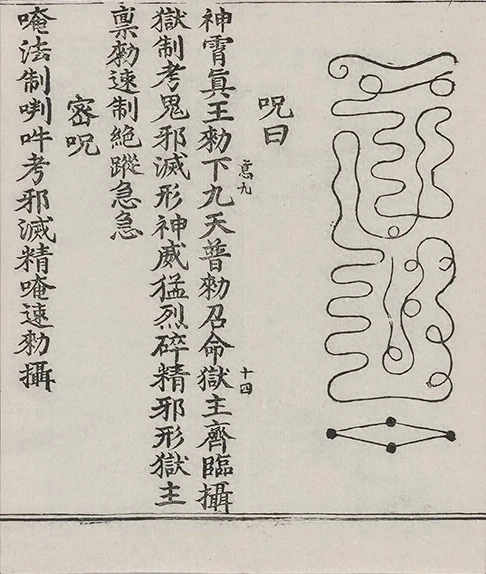 呪曰
神霄眞王勑下九天普勑召命獄主齊臨攝
惪九
十四
獄制考鬼邪滅形神威猛烈碎精邪形獄主
禀勑速制絶蹤急急
密呪
唵法制㘱吽考邪滅精唵速勑攝